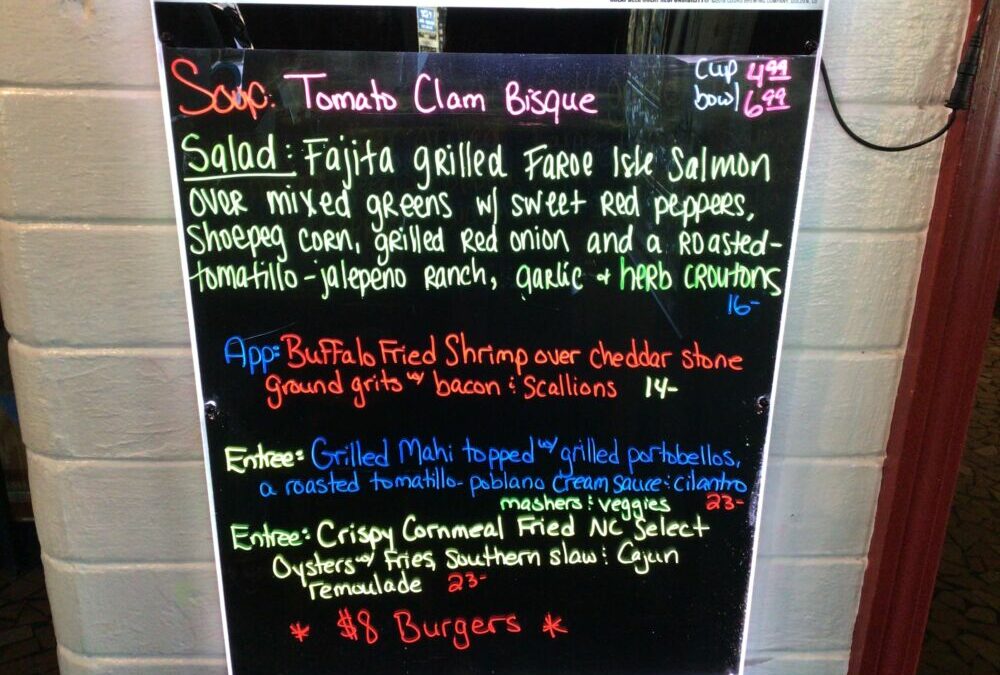 Soup: Tomato Clam Bisque cup 4.99
bowl 6.99
Salad: Fajita grilled Faroe Isle Salmon
over mixed greens w/ sweet red peppers,
Shoepeg corn, grilled red onion and a roasted-
tomatillo-jalepeno ranch, garlic & herb croutons
16-
App: Buffalo Fried Shrimp over cheddar stone
ground grits w/ bacon & scallions 14-
Entree: Grilled Mahi topped w/ grilled portobellos,
a roasted tomatillo-poblano cream sauce & cilantro
mashers & veggies 23-
Entree: Crispy Cornmeal Fried NC Select
Oysters w/ Fries, Southern slaw & Cajun
remoulade 23-
* $8 Burgers *